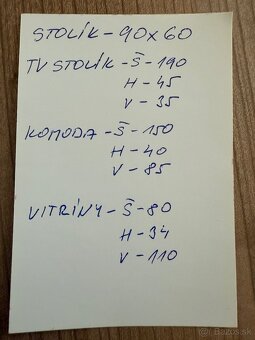 STOLÍK - 90x60
TV STOLÍK - Š - 190
H - 45
V - 35
KOMODA - Š - 150
H - 40
V - 85
VITRÍNY - Š - 80
H - 34
V - 110
Bazos.sk